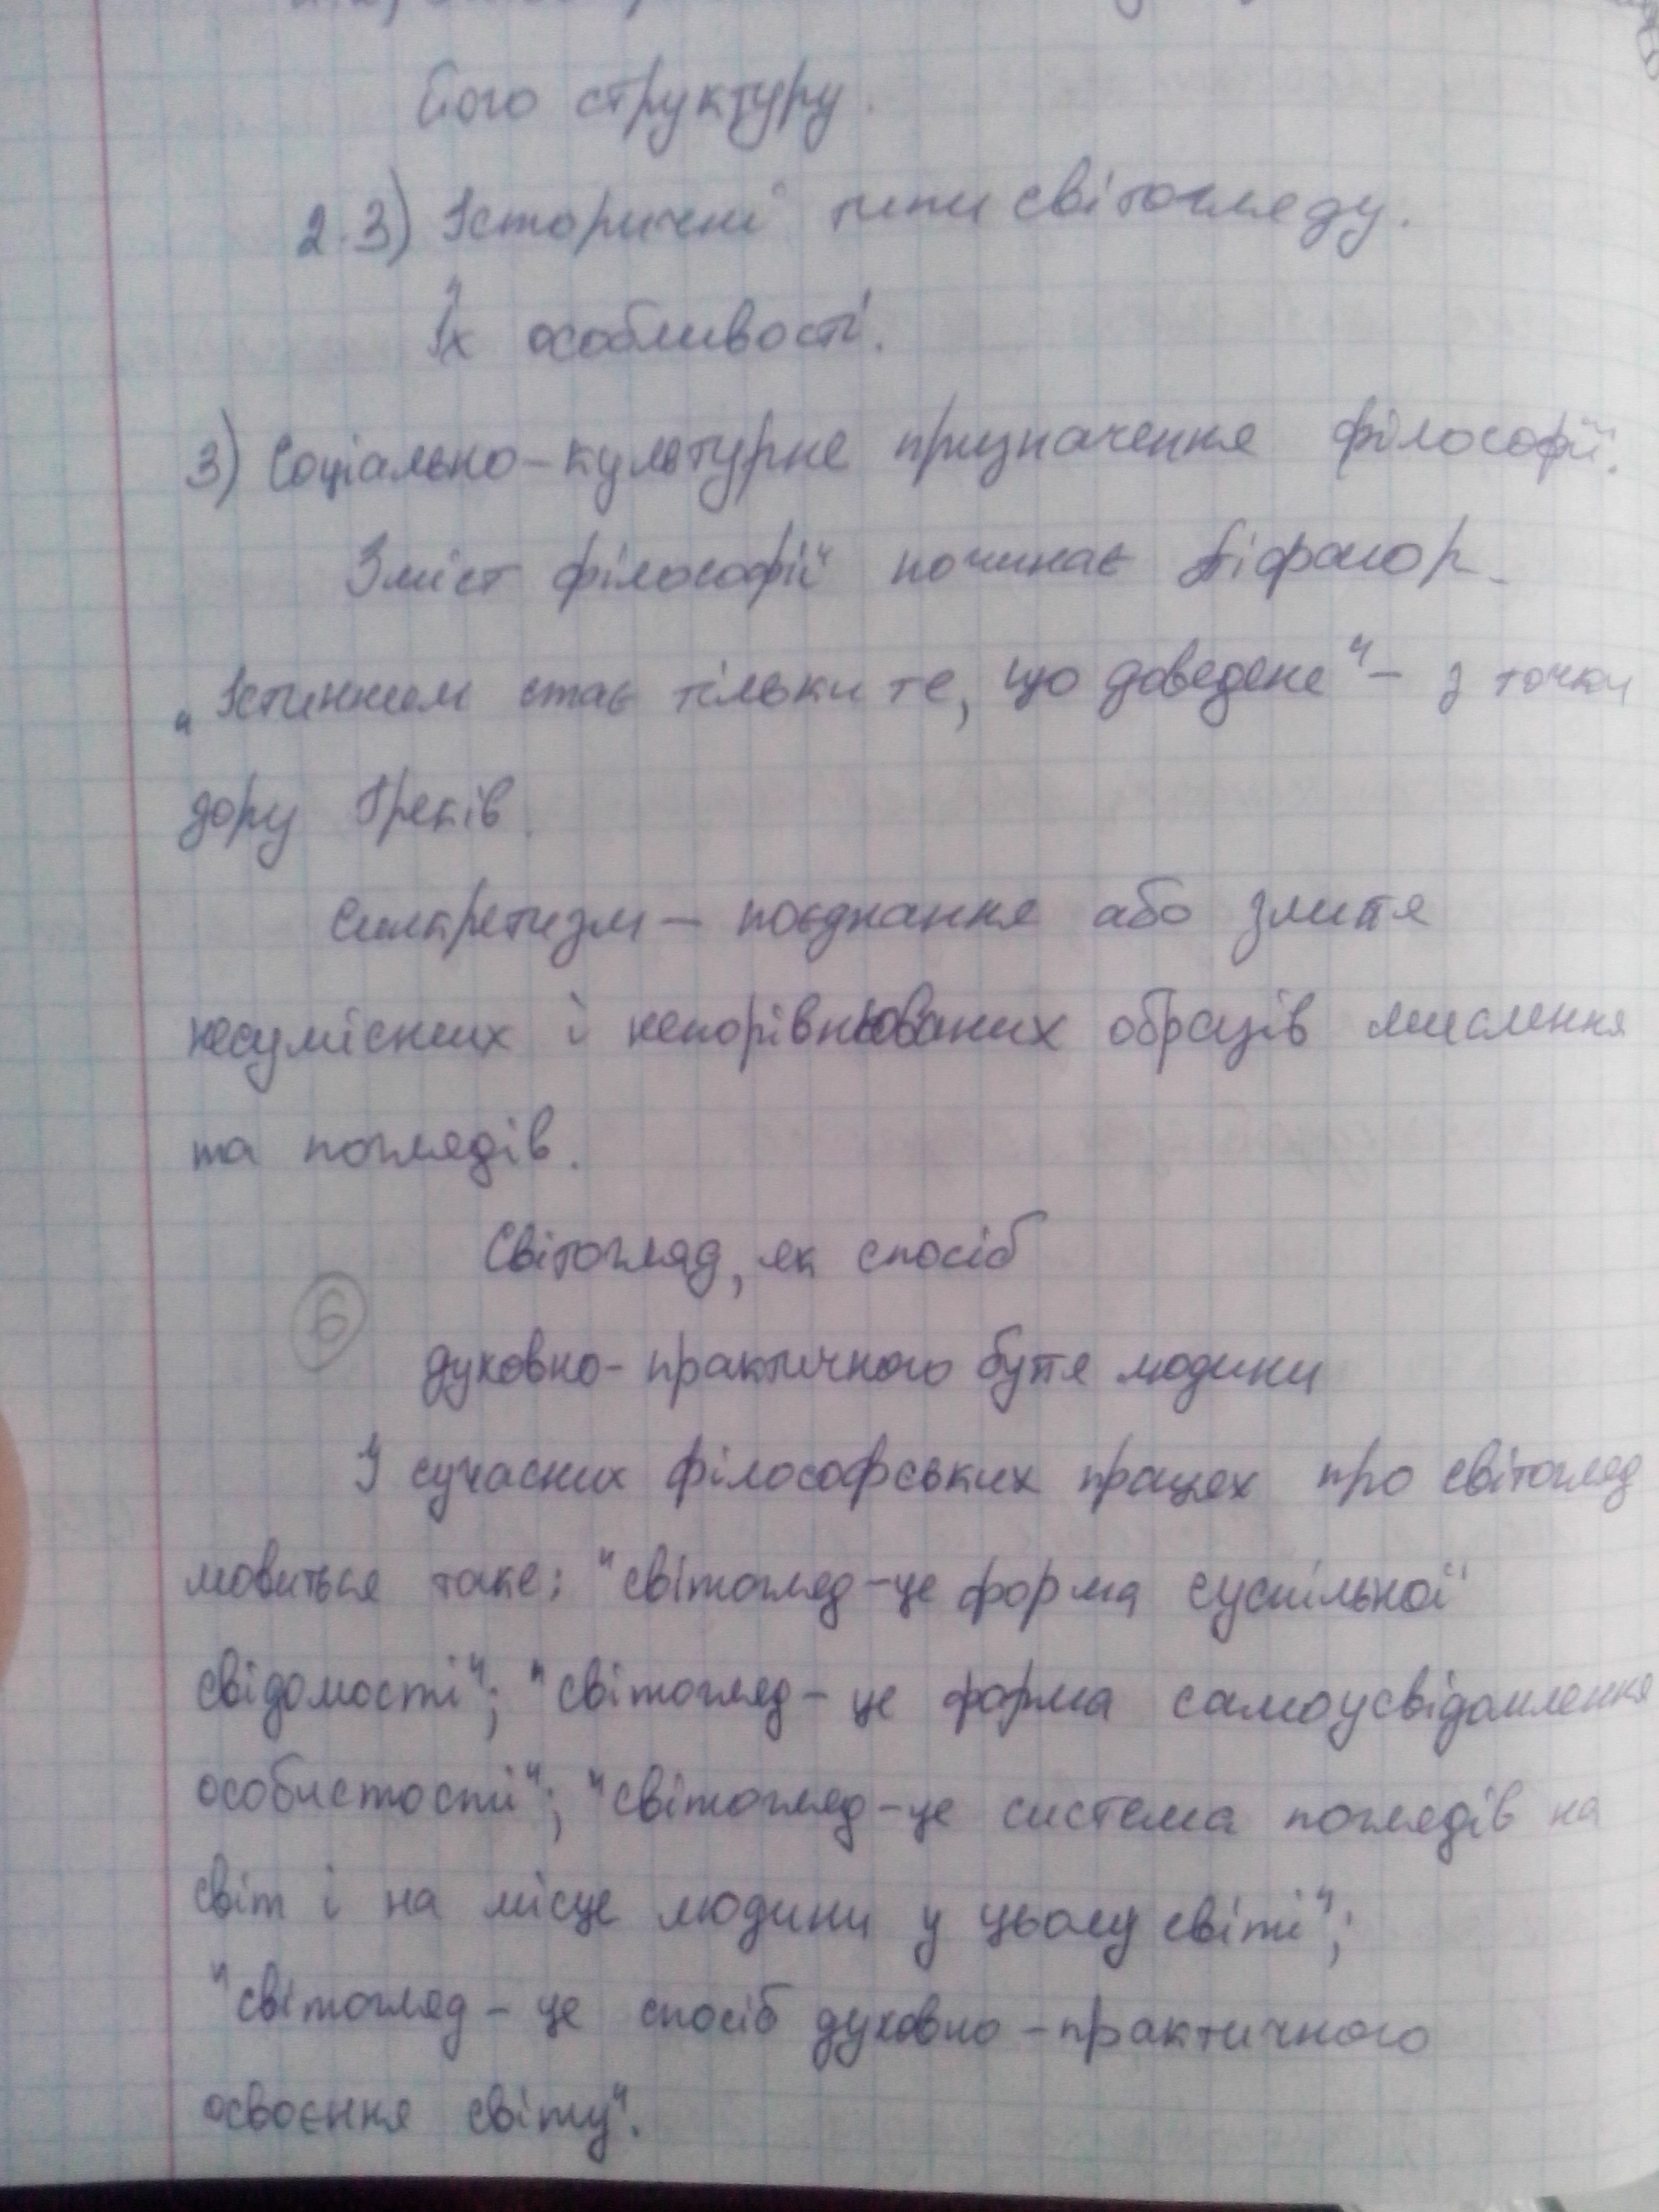 його структуру.
2.3) Історичні типи світогляду.
Їх особливості.
3) Соціально-культурне призначення філософії.
Зміст філософії починає Піфагор.
„Істинним стає тільки те, що доведене" - з точки
зору Греків.
Синкретизм - поєднання або злиття
несумісних і непорівнюваних образів мислення
та поглядів.
Світогляд, як спосіб
6
духовно-практичного буття людини
У сучасних філософських працях про світогляд
мовиться таке: "світогляд-це форма суспільної
свідомості"; "світогляд- це форма самоусвідомлення
особистості"; "світогляд-це система поглядів на
світ і на місце людини у цьому світі";
"світогляд - це спосіб духовно-практичного
освоєння світу".